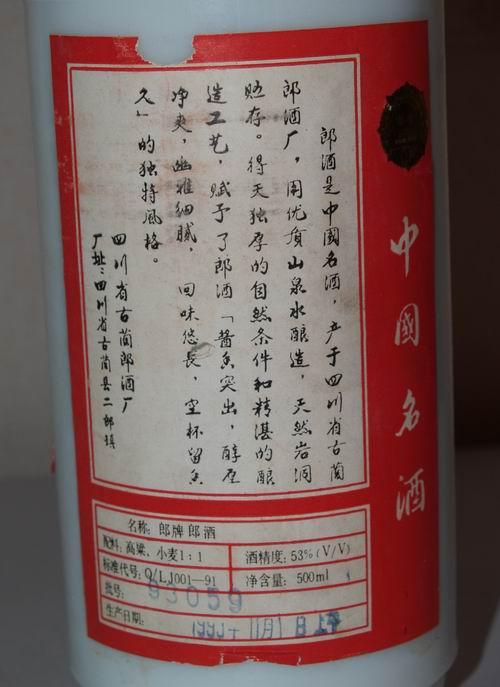 郎酒是中國名酒，产于四川省古蔺
郎酒厂，用优质山泉水酿造，天然岩洞
贮存。得天独厚的自然条件和精湛的酿
造工艺，赋予了郎酒「酱香突出，醇厚
净爽，幽雅细腻，回味悠長，空杯留香
久」的独特風格。
四川省古蔺郎酒厂
厂址：四川省古蔺县二郎镇
中國名酒
名称：郎牌郎酒
配料：高粱、小麦1：1
酒精度：53%(V/V)
标准代号：Q/LJ001—91
净含量：500ml
批号：93059
生产日期：